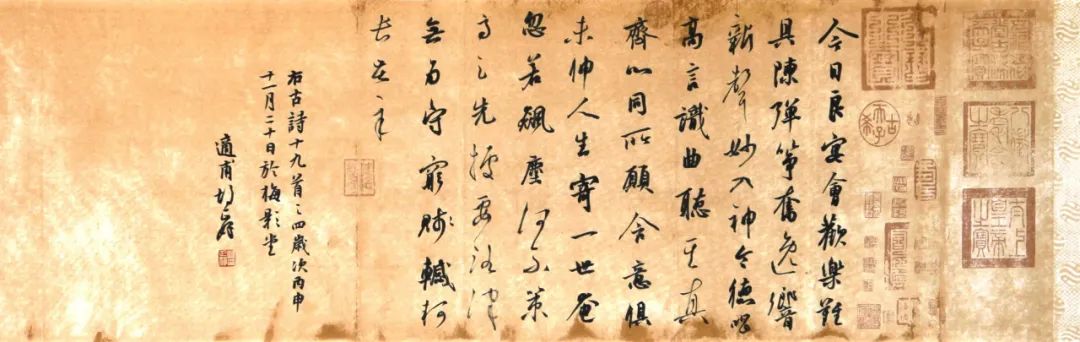 八徵耄念之寶
太上皇帝之寶
古希天子
今日良宴會歡樂難
具陳彈箏奮逸響
新聲妙入神令德唱
高言識曲聽其真
齊心同所願含意俱
未伸人生寄一世奄
忽若飆塵何不策
高足先據要路津
無為守窮賤轗軻
長苦辛
右古詩十九首之四歲次丙申
十一月二十日於梅影堂
適甫